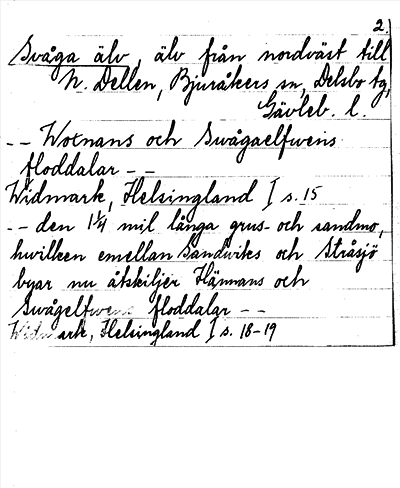 2.
Svåga älv, älv från nordväst till
N. Dellen, Bjuråkers sn, Delsbo tg,
Gävleb. l.
-- Wotnans och Swågaelfwens
floddalar --
Widmark, Helsingland I s. 15
-- den 1¼ mil långa grus- och sandmo,
hwilken emellan Sandwikes och Stråsjö
byar nu åtskiljer Hännans och
Swågelfwens floddalar --
Widmark, Helsingland I s. 18-19